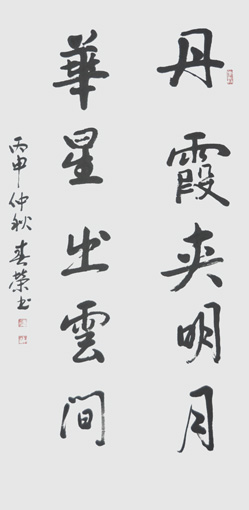 丹霞夹明月
華星出雲間
丙申仲秋春荣书